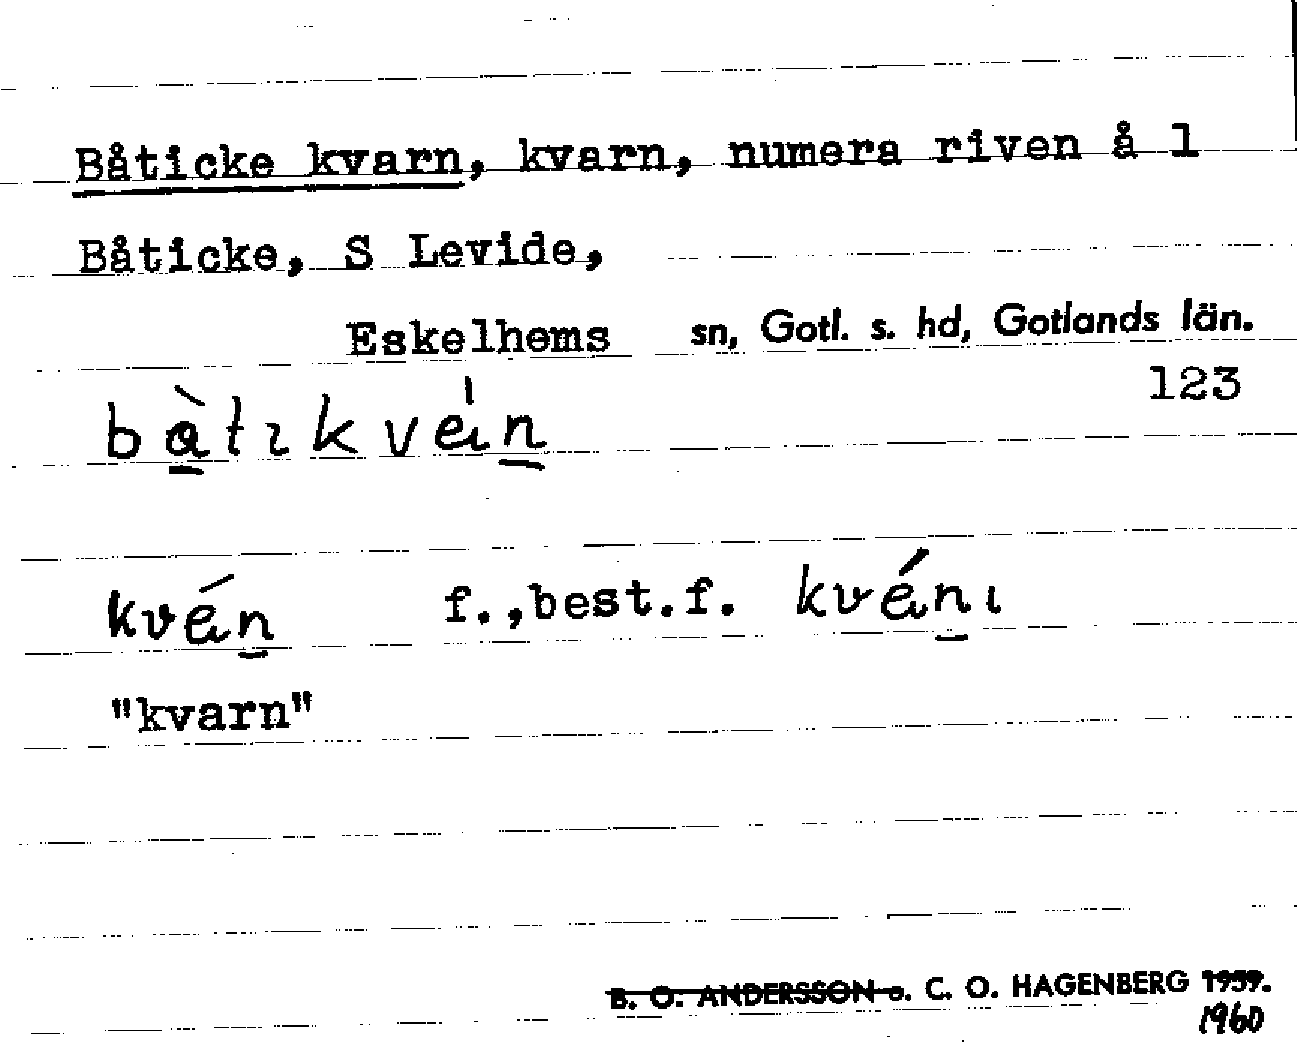 Båticke kvarn, kvarn, numera riven å 1
Båticke, S Levide,
Eskelhems sn, Gotl. s. hd, Gotlands län.
123
bàtɩkvèin
kvén f.,best.f. kvénɩ
"kvarn"
B. O. ANDERSSON o. C. O. HAGENBERG 1959.
1960